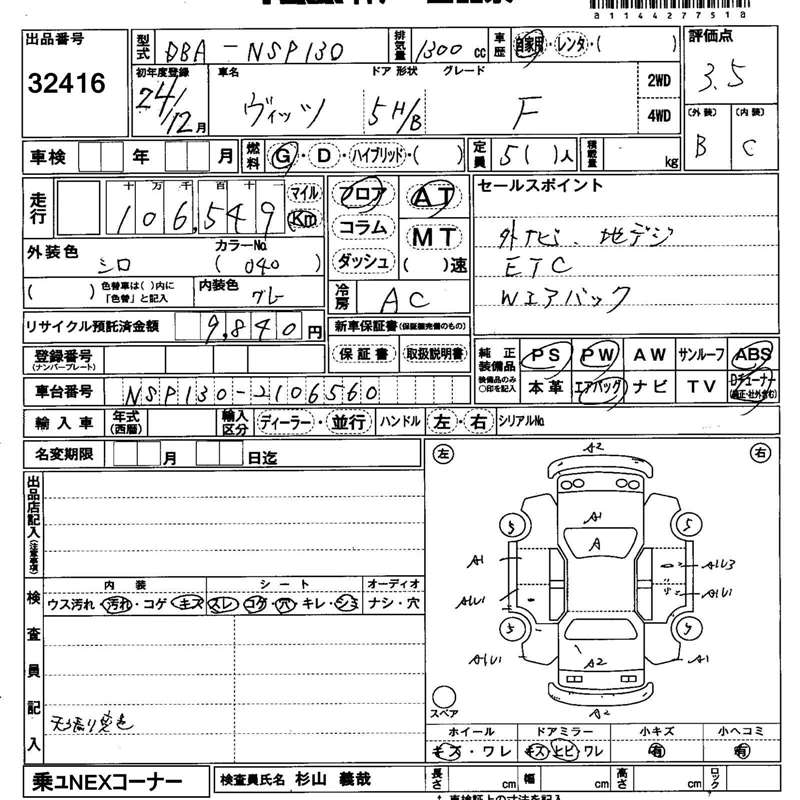 a1144277518
出品番号
32416
型式 DBA-NSP130
排気量 1300 cc
車歴 自家用・レンタ・( )
評価点
3.5
初年度登録
24/12月
車名
ヴィッツ
ドア 形状
5 H/B
グレード
F
2WD
4WD
(外装) B
(内装) C
車検 年 月
燃料 G・D・ハイブリッド・( )
定員 5( )人
積載量 kg
走行
十 万 千 百 十 一
106,549
マイル
Km
フロア
コラム
ダッシュ
AT
MT
( )速
冷房 AC
セールスポイント
外ナビ、地デジ
ETC
Wエアバック
外装色
シロ
カラーNo
( 040 )
( )
色替車は( )内に
「色替」と記入
内装色
グレー
リサイクル預託済金額 9,840円
新車保証書(保証継続完備のもの)
保証書・取扱説明書
登録番号
(ナンバープレート)
車台番号 NSP130-2106560
純正装備品
装備品のみ○印を記入
PS PW AW サンルーフ ABS
本革 エアバッグ ナビ TV Dチューナー
(純正・社外含む)
輸入車
年式
(西暦)
輸入区分 ディーラー・並行
ハンドル 左・右
シリアルNo
名変期限 月 日迄
出品店記入(注意事項)
検査員記入
内装
シート
オーディオ
ウス汚れ・汚れ・コゲ・キズ
スレ・コゲ・穴・キレ・シミ
ナシ・穴
左
右
A2
A1
A
5
5
A1
A1U3
A1U1
A1U1
5
A1U1
A2
A1
A2
スペア
ホイール
キズ・ワレ
ドアミラー
キズ・ヒビ・ワレ
小キズ
有
小ヘコミ
有
乗ユNEXコーナー
検査員氏名 杉山 義哉
長さ cm 幅 cm 高さ cm ロック